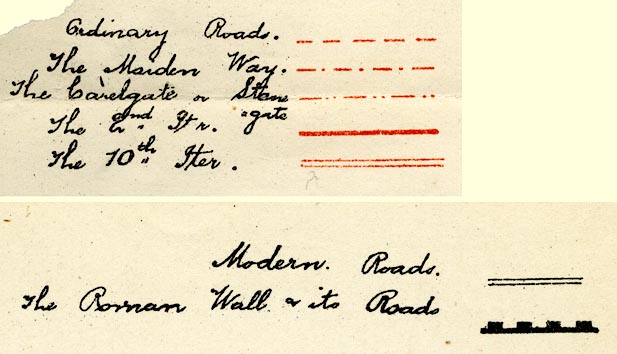 Ordinary Roads.
The Maiden Way.
The Carelgate or Stane
gate
The 2nd Itr.
The 10th Iter.
Modern. Roads.
The Roman Wall & its Roads